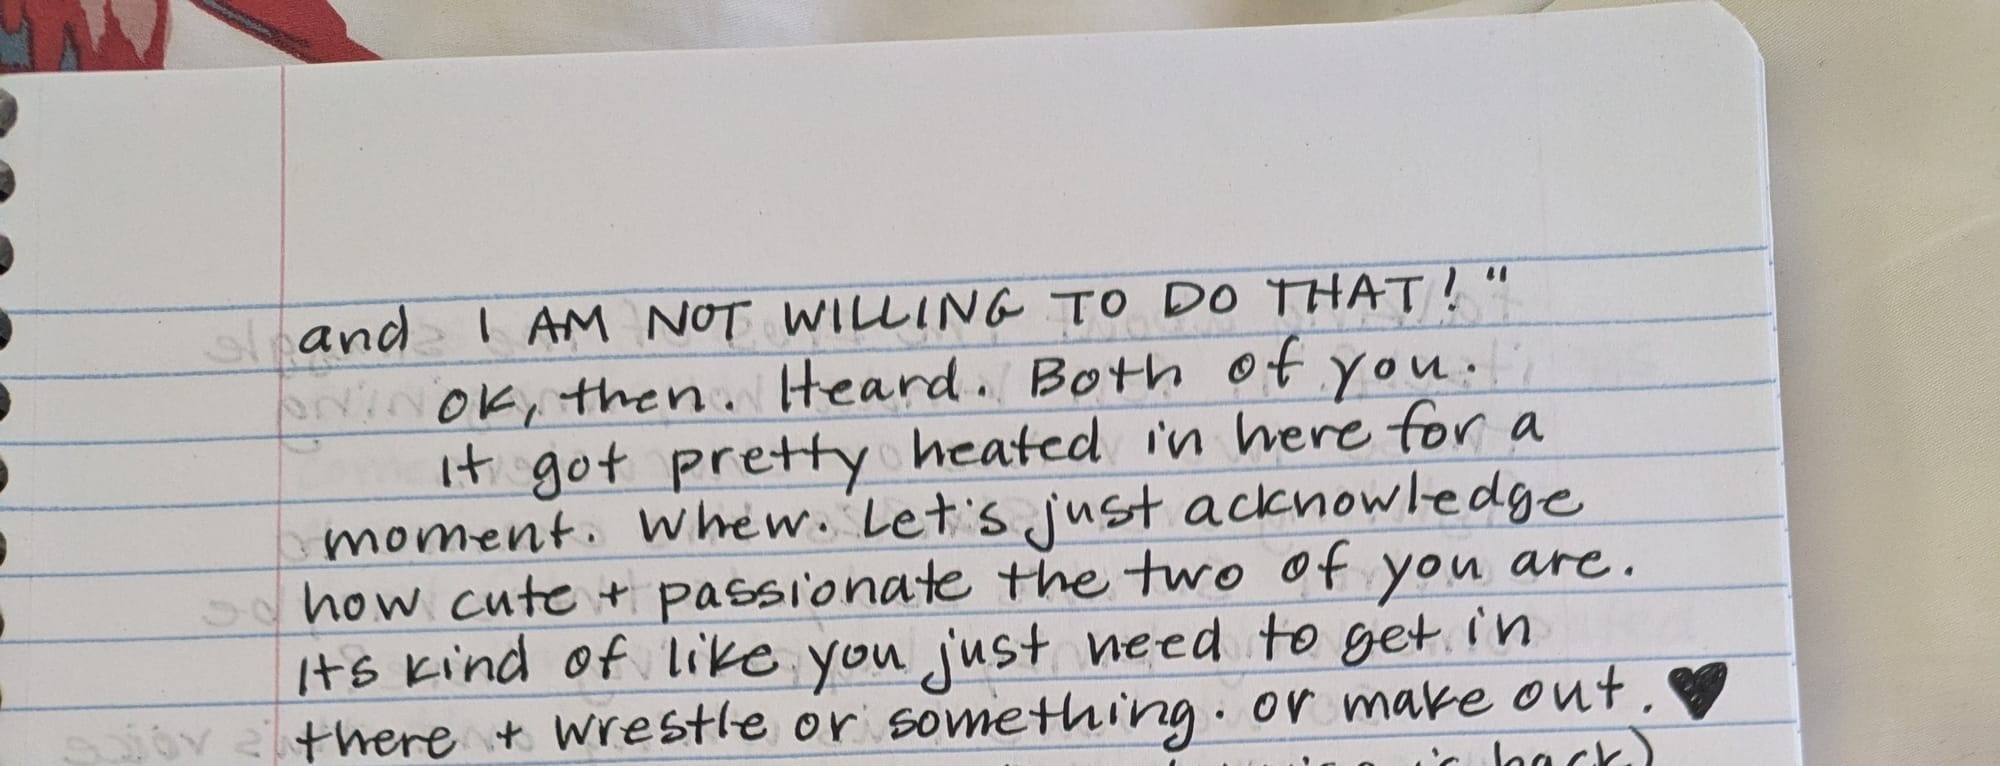 and I AM NOT WILLING TO DO THAT!"
OK, then. Heard. Both of you.
It got pretty heated in here for a
moment. Whew. Let's just acknowledge
how cute + passionate the two of you are.
Its kind of like you just need to get in
there + wrestle or something. or make out. ♥
is back)